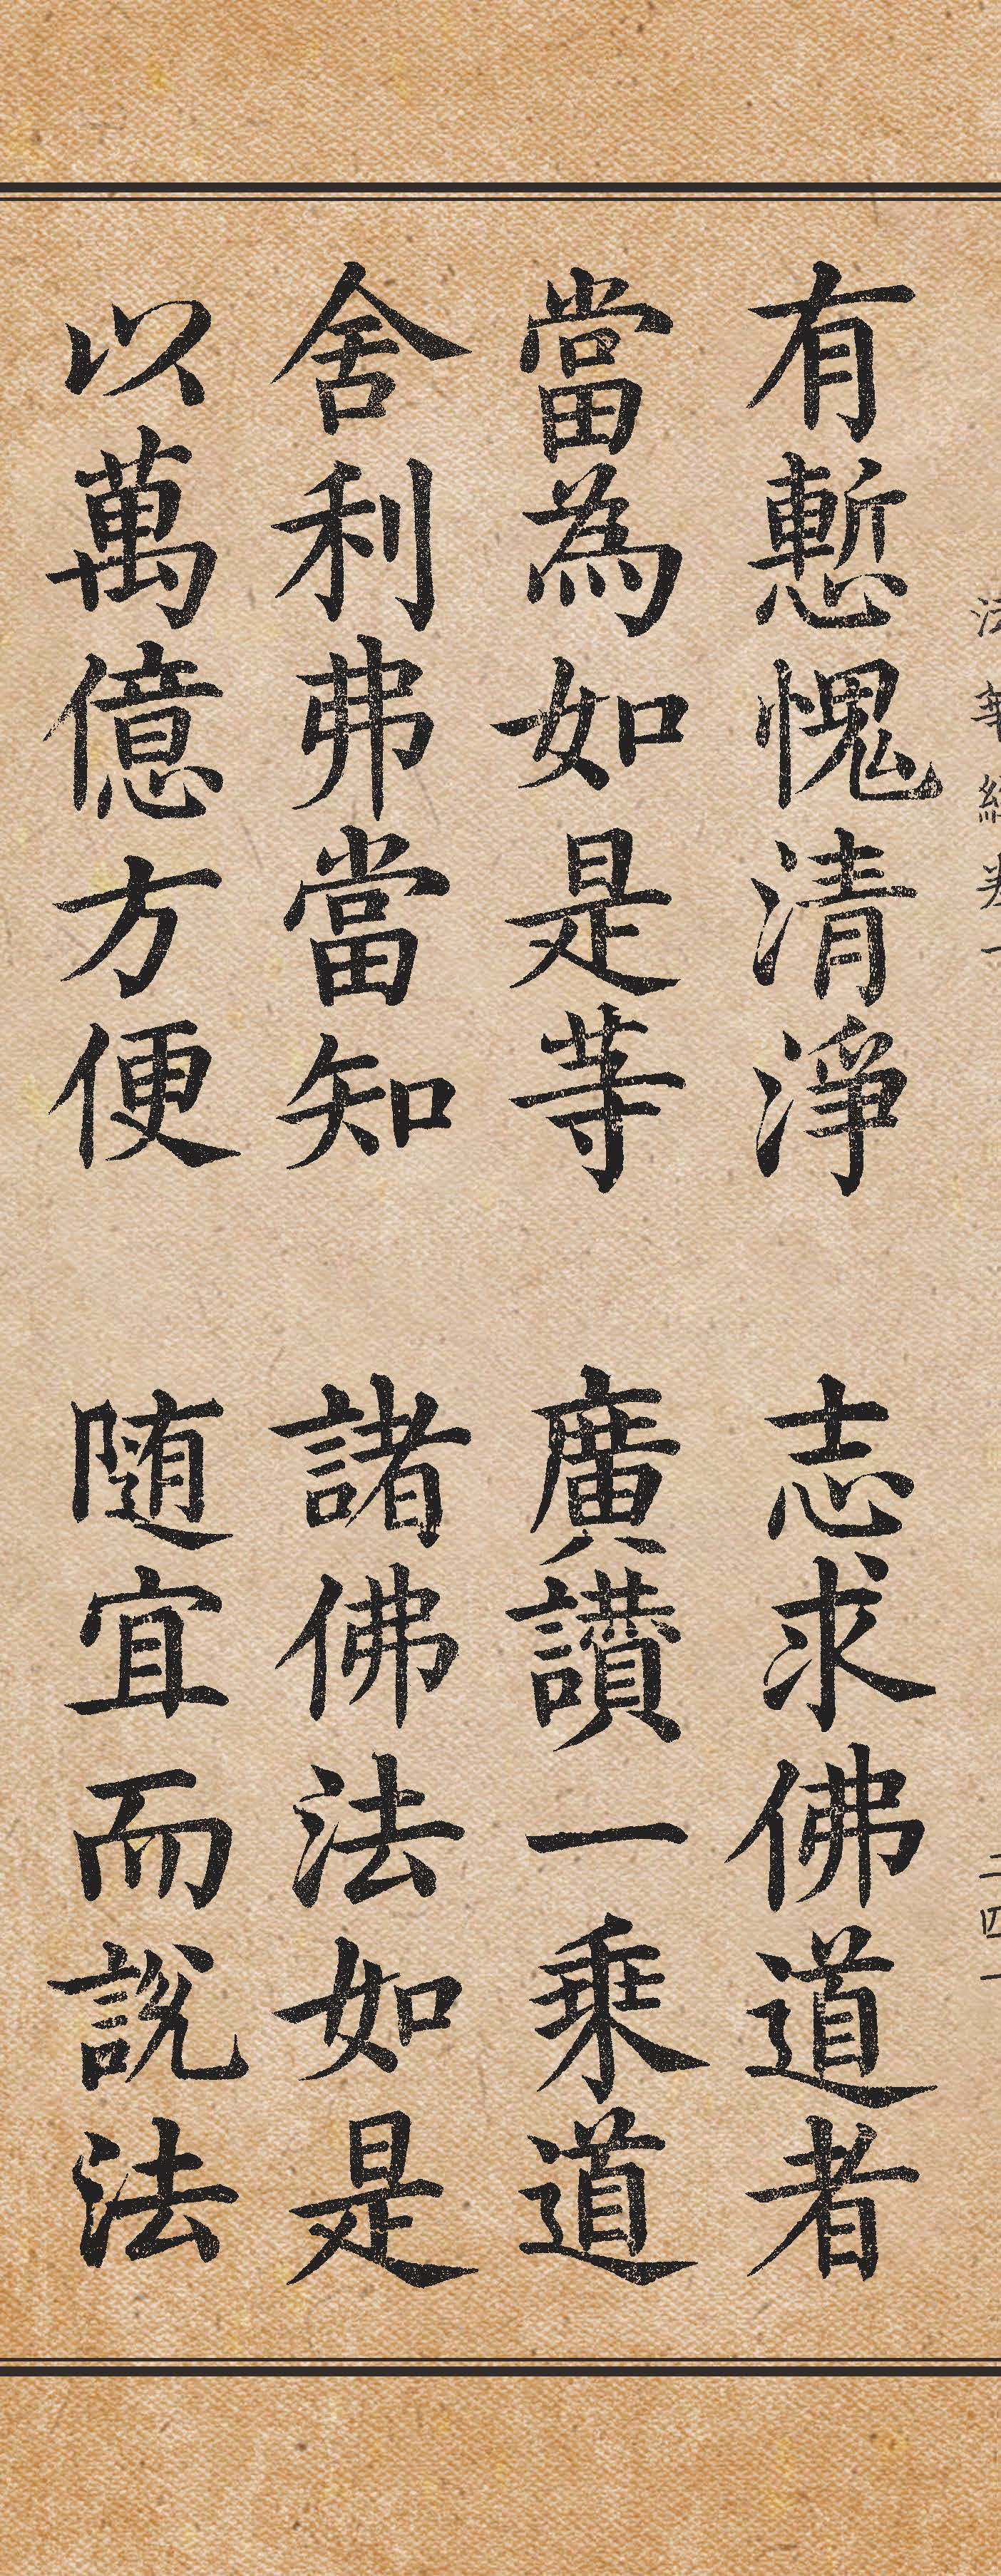 法華經卷一 二四一
有慙愧清淨 志求佛道者
當為如是等 廣讃一乗道
舍利弗當知 諸佛法如是
以萬億方便 随宜而說法